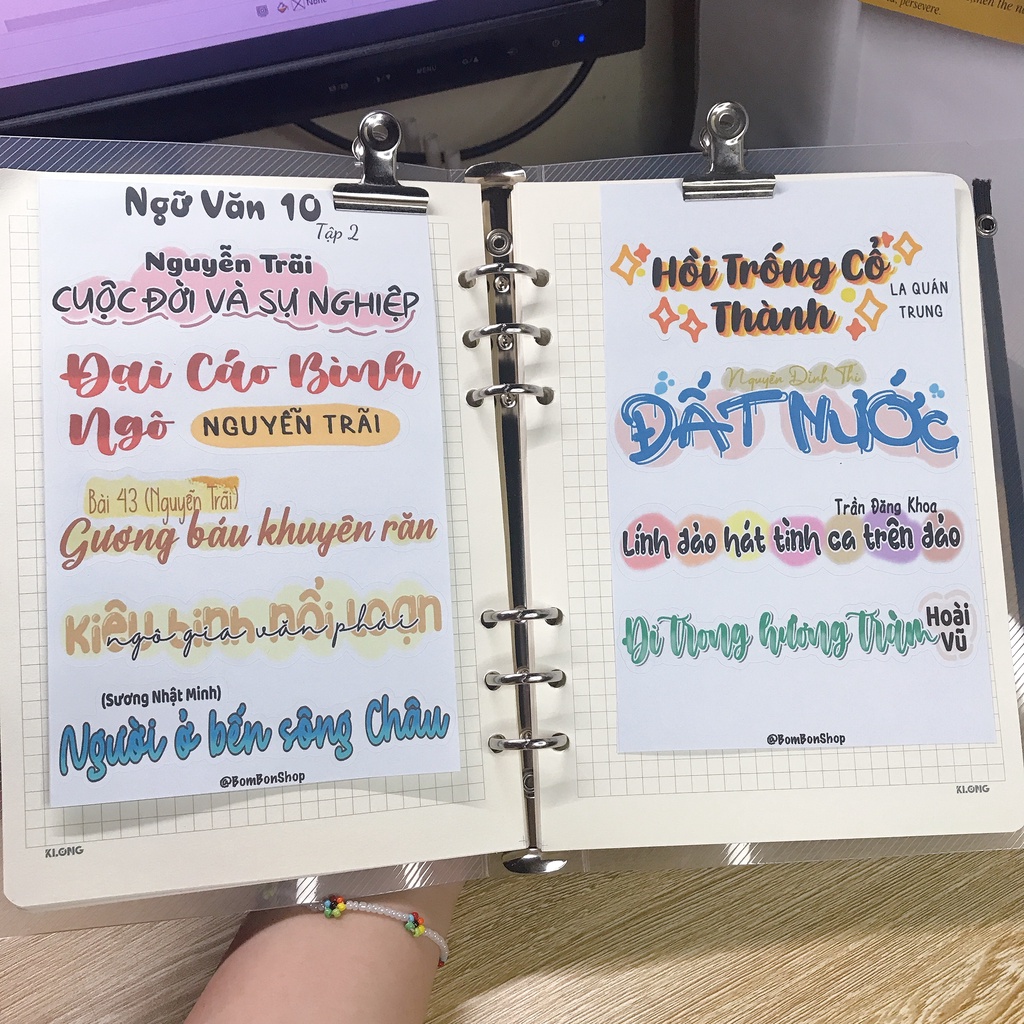 None
MENU
, persevere.
Ngữ Văn 10
Tập 2
Nguyễn Trãi
CUỘC ĐỜI VÀ SỰ NGHIỆP
Đại Cáo Bình
Ngô NGUYỄN TRÃI
Bài 43 (Nguyễn Trãi)
Gương báu khuyên răn
Kiêu binh nổi loạn
ngô gia văn phái
(Sương Nhật Minh)
Người ở bến sông Châu
@BomBonShop
KLONG
Hồi Trống Cổ
Thành
LA QUÁN
TRUNG
Nguyễn Đình Thi
ĐẤT NƯỚC
Trần Đăng Khoa
Lính đảo hát tình ca trên đảo
Đi trong hương tràm
Hoài
Vũ
@BomBonShop
KLONG